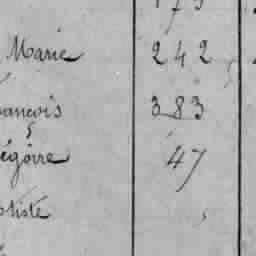 Marie 242
ançois 383
égoire 47
tiste